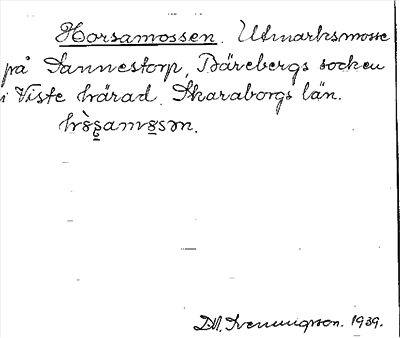 Horsamossen. Utmarksmosse
på Sannestorp, Bärebergs socken
i Viste härad. Skaraborgs län.
1939.